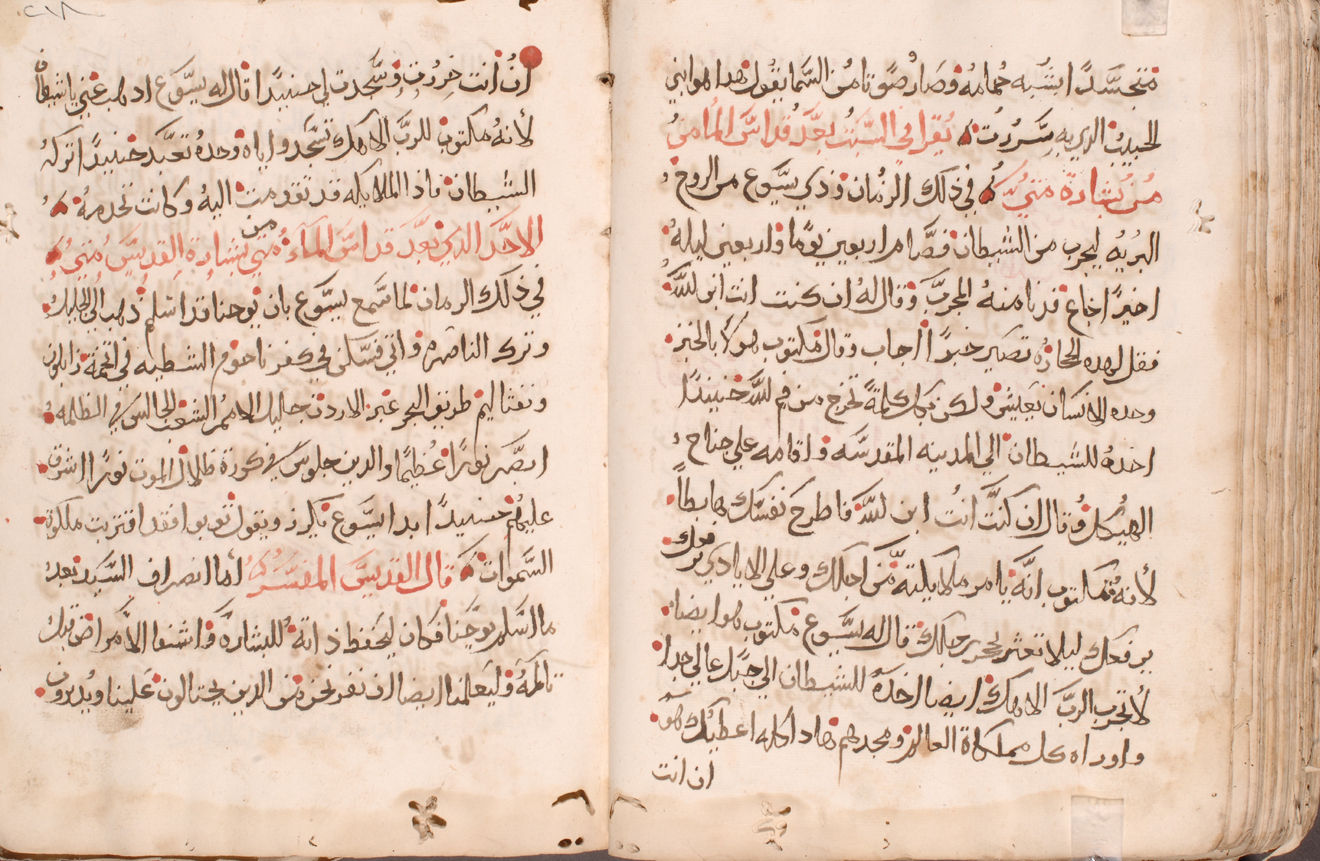 متجسدًا يشبه حمامه وصار صوتا من السما يقول هدا هو ابني
الحبيب الدي به سررت يقرا في السبت بعد قداس الما من
من بشارة متي في ذلك الزمان ودي يسوع من الروح
البريه ليجرب من الشيطان فصام اربعين يومًا واربعين ليله
اخيرًا جاع فدنا منه المجرب وقال له ان كنت انت ابن الله
فقل لهده الحجاره تصير خبزًا اجاب وقال مكتوب هو لا بالخبز
وحده الانسان يعيش ولكن بكل كلمة تخرج من فم الله حينيدًا
اخده للشيطان الي المدينه المقدسه واقامه علي جناح
الهيكل وقال ان كنت انت ابن الله فاطرح نفسك هابطاً
لانه مكتوب انه يامر ملايكته من اجلك وعلي الايادي
يرفعك ليلا تعثر بحجر رجلك قال له يسوع مكتوب هو ايضا
لا تجرب الرب الاهك ايضا اخده للشيطان الي جبل عالي جدا
واوراه كل مملكاة العالم ومجدهم هادا كله اعطيك هو
ان انت
٢١٨
ان انت خررت وسجدت لي حينيدًا قال له يسوع ادهب عني ياشيطان
لانه مكتوب للرب الاهك تسجد واياه وحده تعبد حينيدًا تركه
الشيطان فاذا الملايكه قد تقدمت اليه وكانت تخدمه
الاحد الدي بعد قداس الماء من بشارة القديس متي
في ذلك الزمان لما سمع يسوع بان يوحنا قد اسلم ذهب الي الجليل
وترك الناصره واتي فسكن في كفرناحوم الشطيه في تخمة زابلون
ونفتاليم طريق البحر عبر الاردن جليل الامم الشعب الجالس في الظلمه
ابصر نورًا عظيمًا والدين جلوس في كورة ظلال الموت نورًا اشرق
عليهم حينيدًا بدا يسوع يكرز ويقول توبوا فقد اقتربت ملكوة
السموات قال القديس المفسر أما انصراف السيد بعد
ما اسلم يوحنا فكان ليحفظ داته للبشاره واشفا الامراض تلك
تالمه وليعلمنا ايضا ان نفر نحن من الدين يحتالون علينا ويدرون